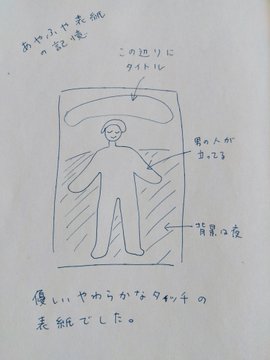 あやふや表紙
の記憶
この辺りに
タイトル
男の人が
立ってる
背景は夜
優しいやわらかなタッチの
表紙でした。